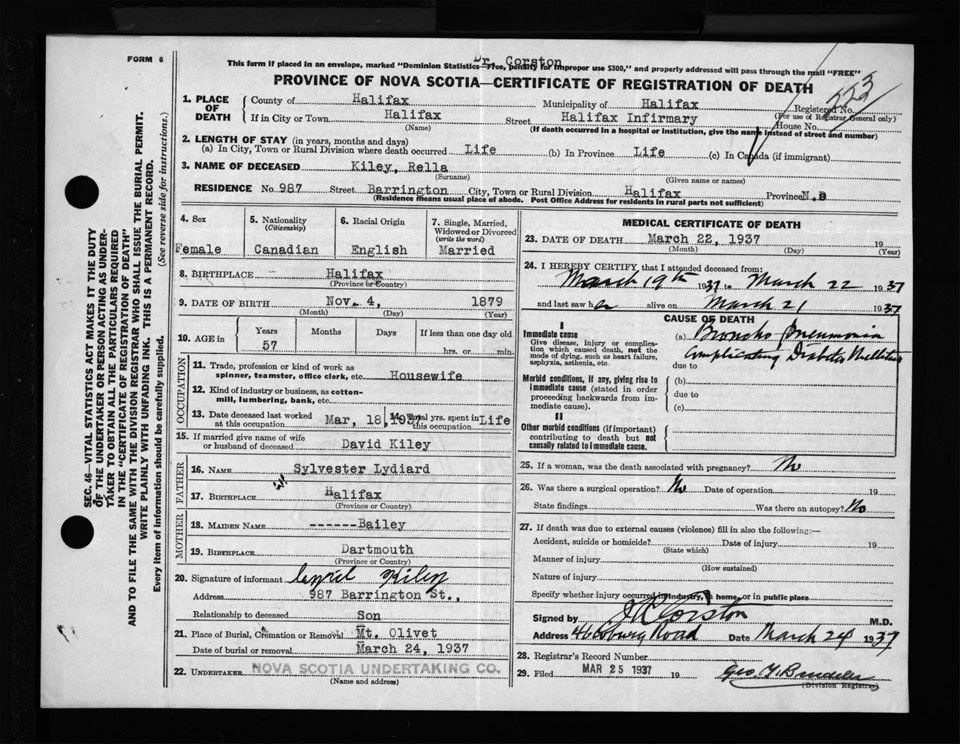 FORM 6
Dr. Corston
This form if placed in an envelope, marked "Dominion Statistics—Free, penalty for improper use $300," and properly addressed will pass through the mail "FREE"
PROVINCE OF NOVA SCOTIA—CERTIFICATE OF REGISTRATION OF DEATH
SEC. 46—VITAL STATISTICS ACT MAKES IT THE DUTY
OF THE UNDERTAKER OR PERSON ACTING AS UNDER-
TAKER TO OBTAIN ALL THE PARTICULARS REQUIRED
IN THE "CERTIFICATE OF REGISTRATION OF DEATH"
AND TO FILE THE SAME WITH THE DIVISION REGISTRAR WHO SHALL ISSUE THE BURIAL PERMIT.
WRITE PLAINLY WITH UNFADING INK. THIS IS A PERMANENT RECORD.
Every item of information should be carefully supplied. (See reverse side for instructions.)
1. PLACE OF DEATH
County of Halifax Municipality of Halifax Registered No. 553
(For use of Registrar General only)
If in City or Town Halifax Street Halifax Infirmary House No.
(Name) (If death occurred in a hospital or institution, give the name instead of street and number)
2. LENGTH OF STAY (in years, months and days)
(a) In City, Town or Rural Division where death occurred Life (b) In Province Life (c) In Canada (if immigrant)
3. NAME OF DECEASED Kiley, Rella
(Surname) (Given name or names)
RESIDENCE No. 987 Street Barrington City, Town or Rural Division Halifax Province N.S
(Residence means usual place of abode. Post Office Address for residents in rural parts not sufficient)
4. Sex Female
5. Nationality (Citizenship) Canadian
6. Racial Origin English
7. Single, Married, Widowed or Divorced (write the word) Married
8. BIRTHPLACE Halifax
(Province or Country)
9. DATE OF BIRTH Nov. 4, 1879
(Month) (Day) (Year)
10. AGE in Years 57 Months Days If less than one day old hrs. or min.
OCCUPATION
11. Trade, profession or kind of work as spinner, teamster, office clerk, etc. Housewife
12. Kind of industry or business, as cotton-mill, lumbering, bank, etc.
13. Date deceased last worked at this occupation Mar, 18, 1937
14. Total yrs. spent in this occupation Life
15. If married give name of wife or husband of deceased David Kiley
FATHER
16. NAME Sylvester Lydiard
17. BIRTHPLACE Halifax
(Province or Country)
MOTHER
18. MAIDEN NAME ------Bailey
19. BIRTHPLACE Dartmouth
(Province or Country)
20. Signature of informant Cyril Kiley
Address 987 Barrington St.,
Relationship to deceased Son
21. Place of Burial, Cremation or Removal Mt. Olivet
Date of burial or removal March 24, 1937
22. UNDERTAKER NOVA SCOTIA UNDERTAKING CO.
(Name and address)
MEDICAL CERTIFICATE OF DEATH
23. DATE OF DEATH March 22, 1937 19
(Month) (Day) (Year)
24. I HEREBY CERTIFY that I attended deceased from:
March 19th 1937 to March 22 1937
and last saw h er alive on March 21 1937
CAUSE OF DEATH
I
Immediate cause
Give disease, injury or complication which caused death, not the mode of dying, such as heart failure, asphyxia, asthenia, etc.
(a) Broncho Pneumonia
Complicating Diabetes Mellitus
due to
Morbid conditions, if any, giving rise to immediate cause (stated in order proceeding backwards from immediate cause).
(b)
due to
(c)
II
Other morbid conditions (if important) contributing to death but not causally related to immediate cause.
25. If a woman, was the death associated with pregnancy? No
26. Was there a surgical operation? No Date of operation 19
State findings Was there an autopsy? No
27. If death was due to external causes (violence) fill in also the following:—
Accident, suicide or homicide? Date of injury 19
(State which)
Manner of injury
(How sustained)
Nature of injury
Specify whether injury occurred in industry, in home, or in public place
Signed by Corston M.D.
Address 46 Coburg Road Date March 24 1937
28. Registrar's Record Number
29. Filed MAR 25 1937 19
(Division Registrar)